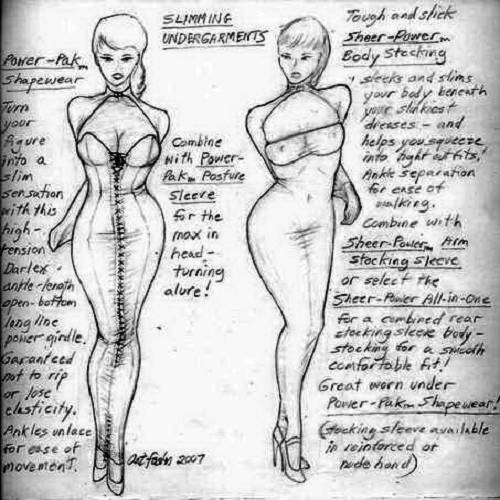 SLIMMING
UNDERGARMENTS
Power-Pak™
Shapewear
Turn
your
figure
into a
slim
sensation
with this
high-
tension
Darlex
ankle-length
open-bottom
longline
power girdle.
Garanteed
not to rip
or lose
elasticity.
Ankles unlace
for ease of
movement.
Combine
with Power-
Pak™ Posture
Sleeve
for the
max in
head-
turning
alure!
Tough and slick
Sheer-Power™
Body Stocking
sleeks and slims
your body beneath
your slinkiest
dresses - and
helps you squeeze
into tight outfits!
Ankle separation
for ease of
walking.
Combine with
Sheer-Power™ Arm
Stocking Sleeve
or select the
Sheer-Power All-in-One
for a combined rear
stocking sleeve body-
stocking for a smooth
comfortable fit!
Great worn under
Power-Pak™ Shapewear!
(Stocking sleeve available
in reinforced or
nude hand)
2007